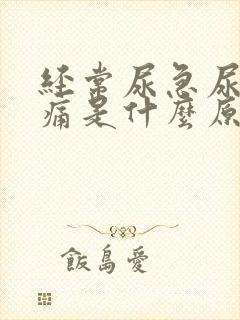 经常尿急尿
痛是什麼原
飯島愛